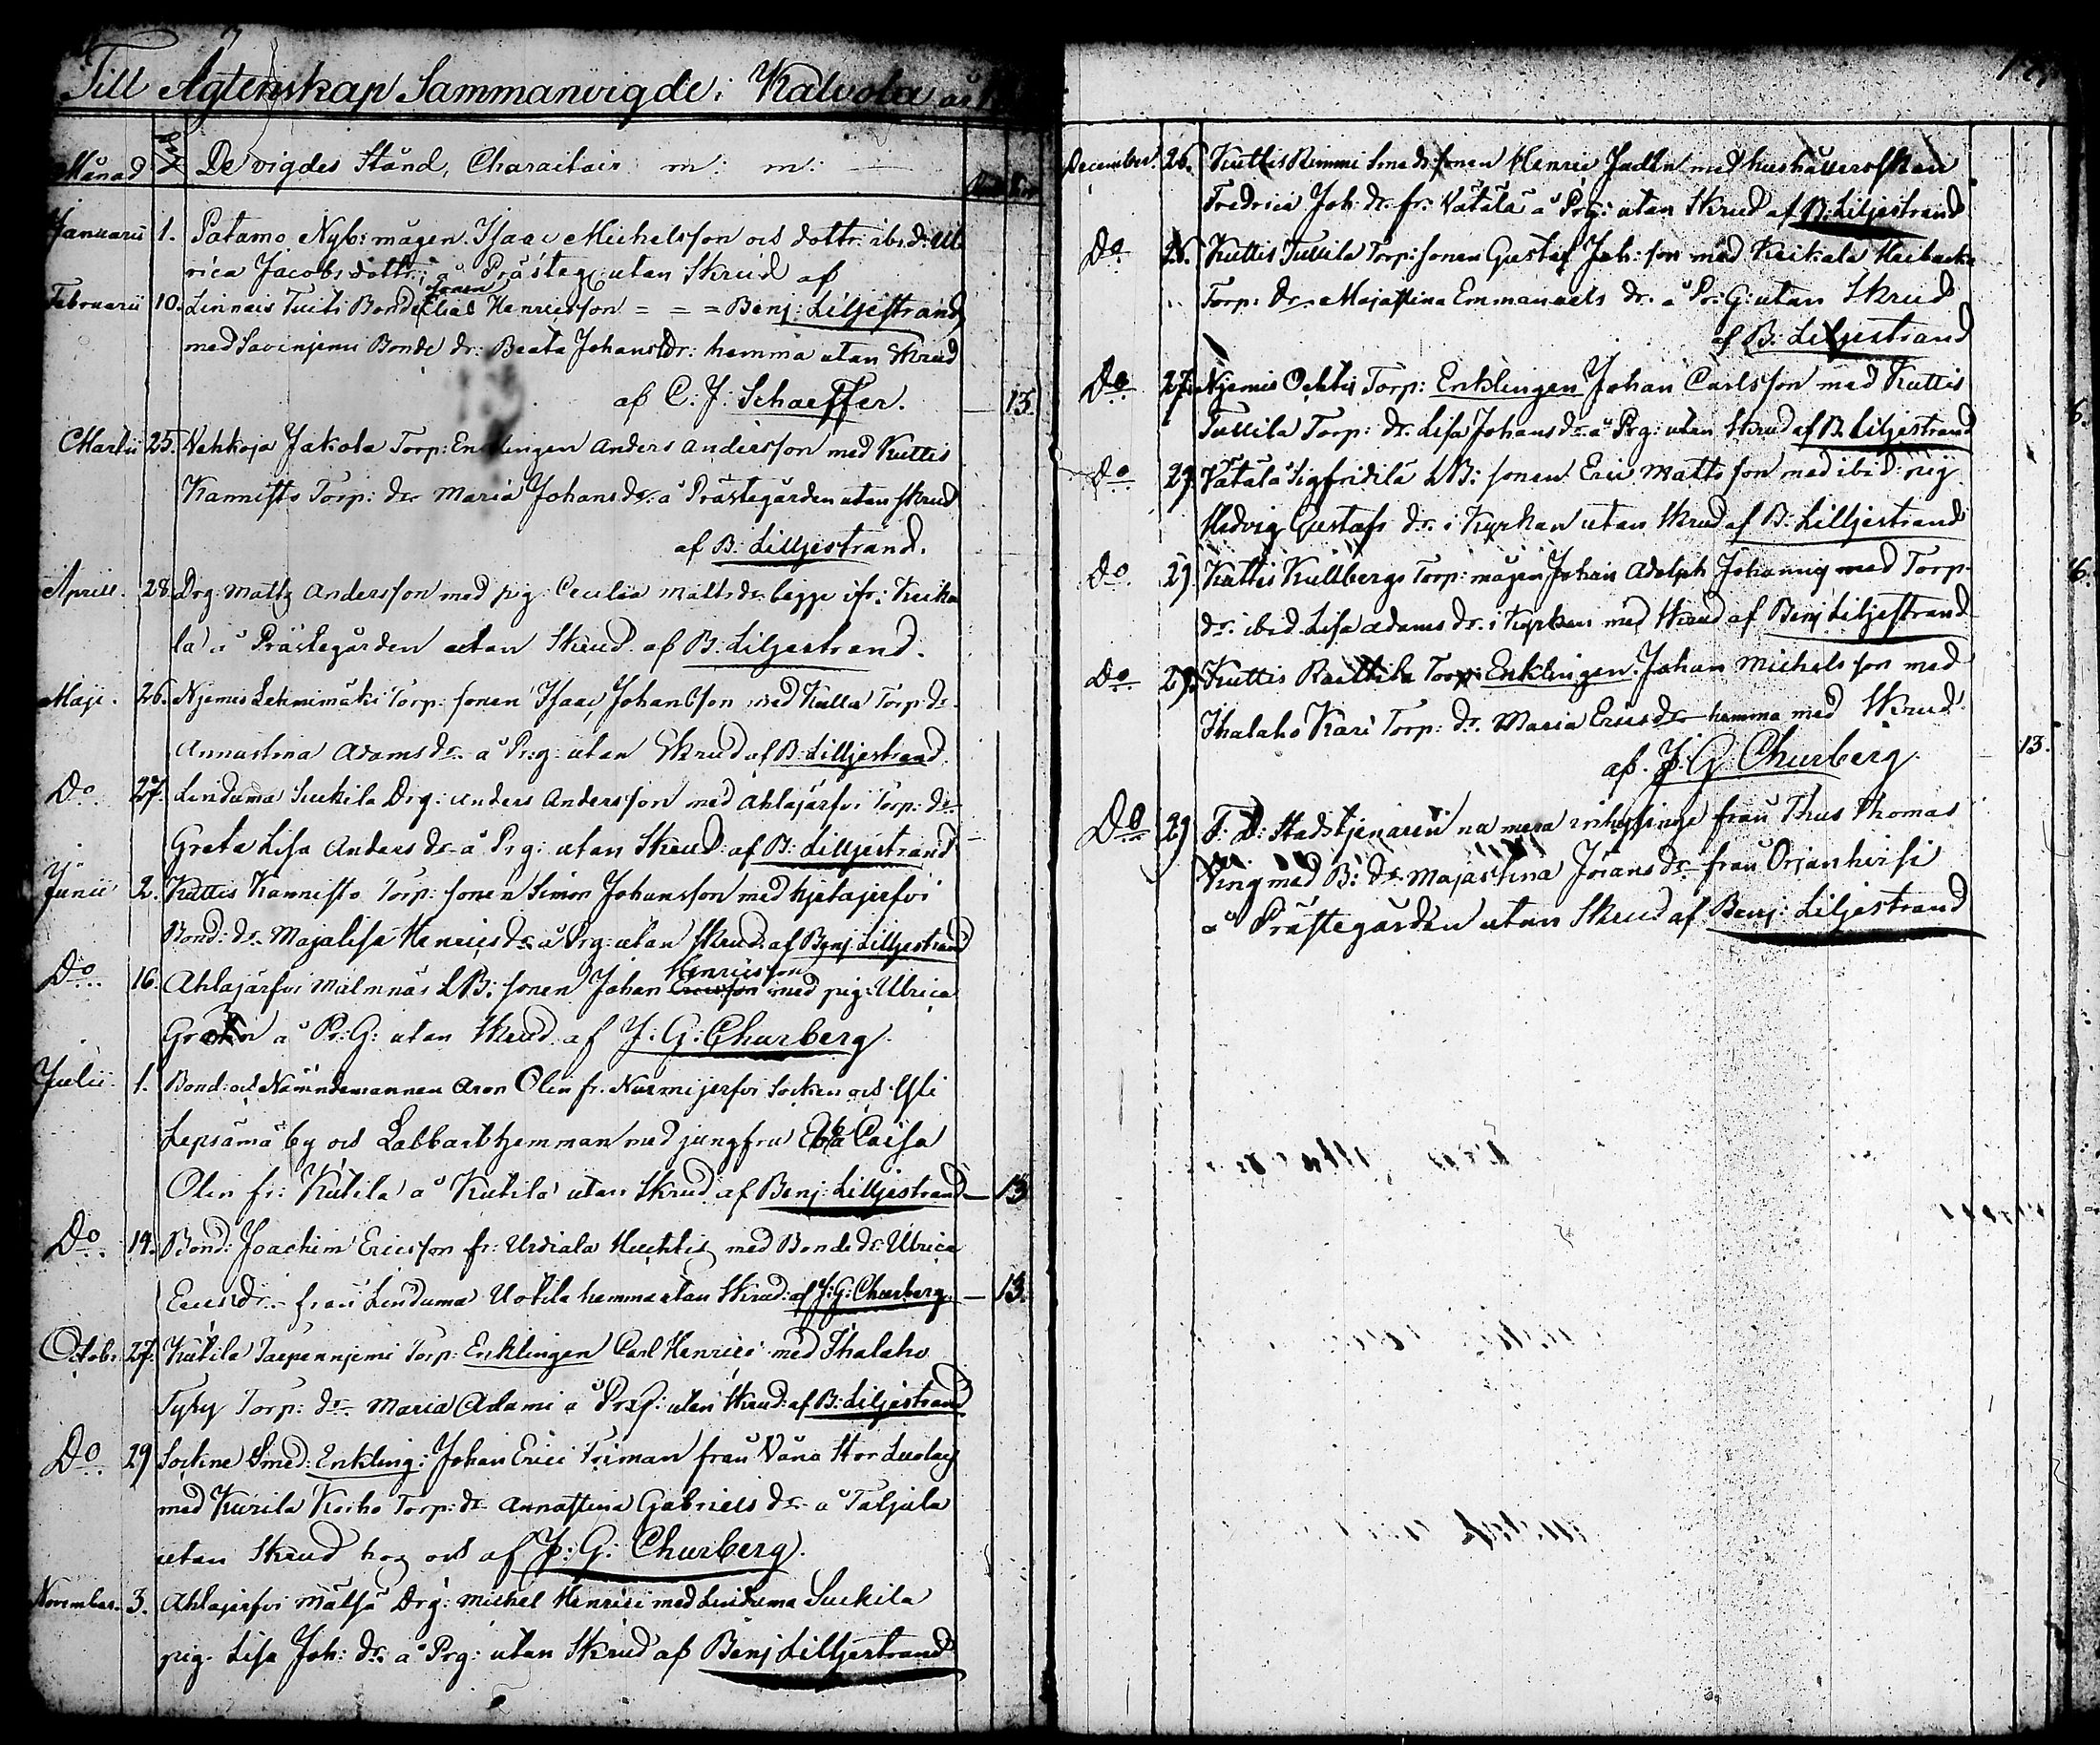 Till Ägtenskap Sammanvigde i Kalvola år
Månad De vigdes Stånd, Charactair m: m:
Januarii 1. Patamo Nyb: mågen Isaac Michelsson och dottr: ibid: Ul
rica Jacobsdottr: å Prästeg: utan Skrud af
Februarii 10. Linnais Tuiti Bonde sonen Elias Henricsson = = = Benj: Liljestrand
med Savinjemi Bonde dr: Beata Johansdr: hemma utan Skrud
af C: J: Schaeffer. — 13.
Martii 25. Vehkoja Jakola Torp: Enklingen Anders Andersson med Kuttis
Kannisto Torp: dr Maria Johansdr: å Prästegården utan skrud
af B: Lilljestrand.
Aprill. 28. Drg: Matts Andersson med pig: Cecilia Mattsdr begge ifr: Keika
la å Prästegården utan Skrud af B: Liljestrand.
Maji. 26. Njemis Lehmimäki Torp: sonen Isaac Johansson med Kulla Torp: dr.
Annastina Adamsdr. å Prg: utan Skrud af B: Lilljestrand
Do 27. Linduma Suckila Drg: Anders Andersson med Ahlajärfvi Torp: dr
Greta Lisa Anders dr å Prg: utan Skrud af B: Lilljestrand
Junii 2. Kuttis Kannisto Torp: sonen Simon Johansson med hjetajerfvi
Bond: dr. Majalisa Henricsdr. å Prg: utan Skrud af Benj Lilljestrand
Do 16. Ahlajärfvi Malmnäs LB: sonen Johan Ericsson Henricsson med pig: Ulrica
å Pr: G: utan Skrud af J: G: Churberg.
Julii 1. Bond: och Nämndemannen Aron Olin fr. Nurmijerfvi Socken och
Lepsämä by och Labbart hemman med jungfru Ebba Caisa
Olin fr: Kutila å Kutila utan Skrud af Benj: Lilljestrand — 13
Do 14. Bond: Joachim Ericsson fr: Urdiala Huchtis med Bonde dr: Ulrica
Ericsdr. från Linduma Uotila hemma utan Skrud af J: G: Churberg. — 13.
Octobr. 27. Kutila Taepennjemi Torp: Enklingen Carl Henrici med Ihalaho
Tyky Torp: dr. Maria Adami å Prg: utan Skrud: af B: Liljestrand
Do 29 Sockne Smed: Enkling: Johan Erici Friman från Vänå Stor
med Kurila Keiho Torp: dr Annastina Gabriels dr. å Taljala
utan Skrud hog och af J: G: Churberg.
November. 3. Ahlajerfvi Mälsä Drg: Michel Henrici med Linduma Suckila
pig. Lisa Joh: dr: å Prg: utan Skrud af Benj Lilljestrand
December 26. Kuttis Rimmi Smeds sonen Henric Jadlin med
Fredrica Joh: dr. fr. Vätälä å Prg: utan Skrud af B: Liljestrand
Do 26. Kuttis Tuuila Torp: sonen Gustaf Joh: son med Keikala
Torp: dr. Majastina Emmanuels dr. å Pr: G: utan Skrud
af B: Liljestrand
Do 27. Njemis Ochtis Torp: Enklingen Johan Carlsson med Kuttis
Tuuila Torp: dr. Lisa Johansdr. å Prg: utan Skrud af B. Liljestrand 6.
Do 29. Vätälä Sigfridilä LB: sonen Eric Mattsson med ibid: pig
Hedvig Gustafs dr. i Kyrkan utan Skrud af B: Lilljestrand
Do 29. Kuttis Kullbergs Torp: mågen Johan Adolph Johanng med Torp 16.
dr. ibid Lisa Adams dr. i Kyrkan med Skrud af Benj Liljestrand
Do 29. Kuttis Raittila Torp: Enklingen Johan Michelsson med
Ihalaho Kari Torp: dr. Maria Ericsdr hemma med Skrud
af. J: G: Churberg. 13.
Do 29 F: D: Stadstjenaren na mera inhysinge från Thus Thomas
Ving med B: dr. Majastina Jöransdr från Orjanhirsi
å Prästegården utan Skrud af Benj: Liljestrand